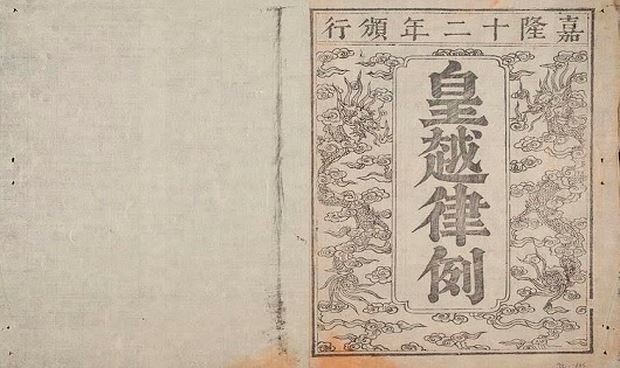 嘉隆十二年頒行
皇越律例